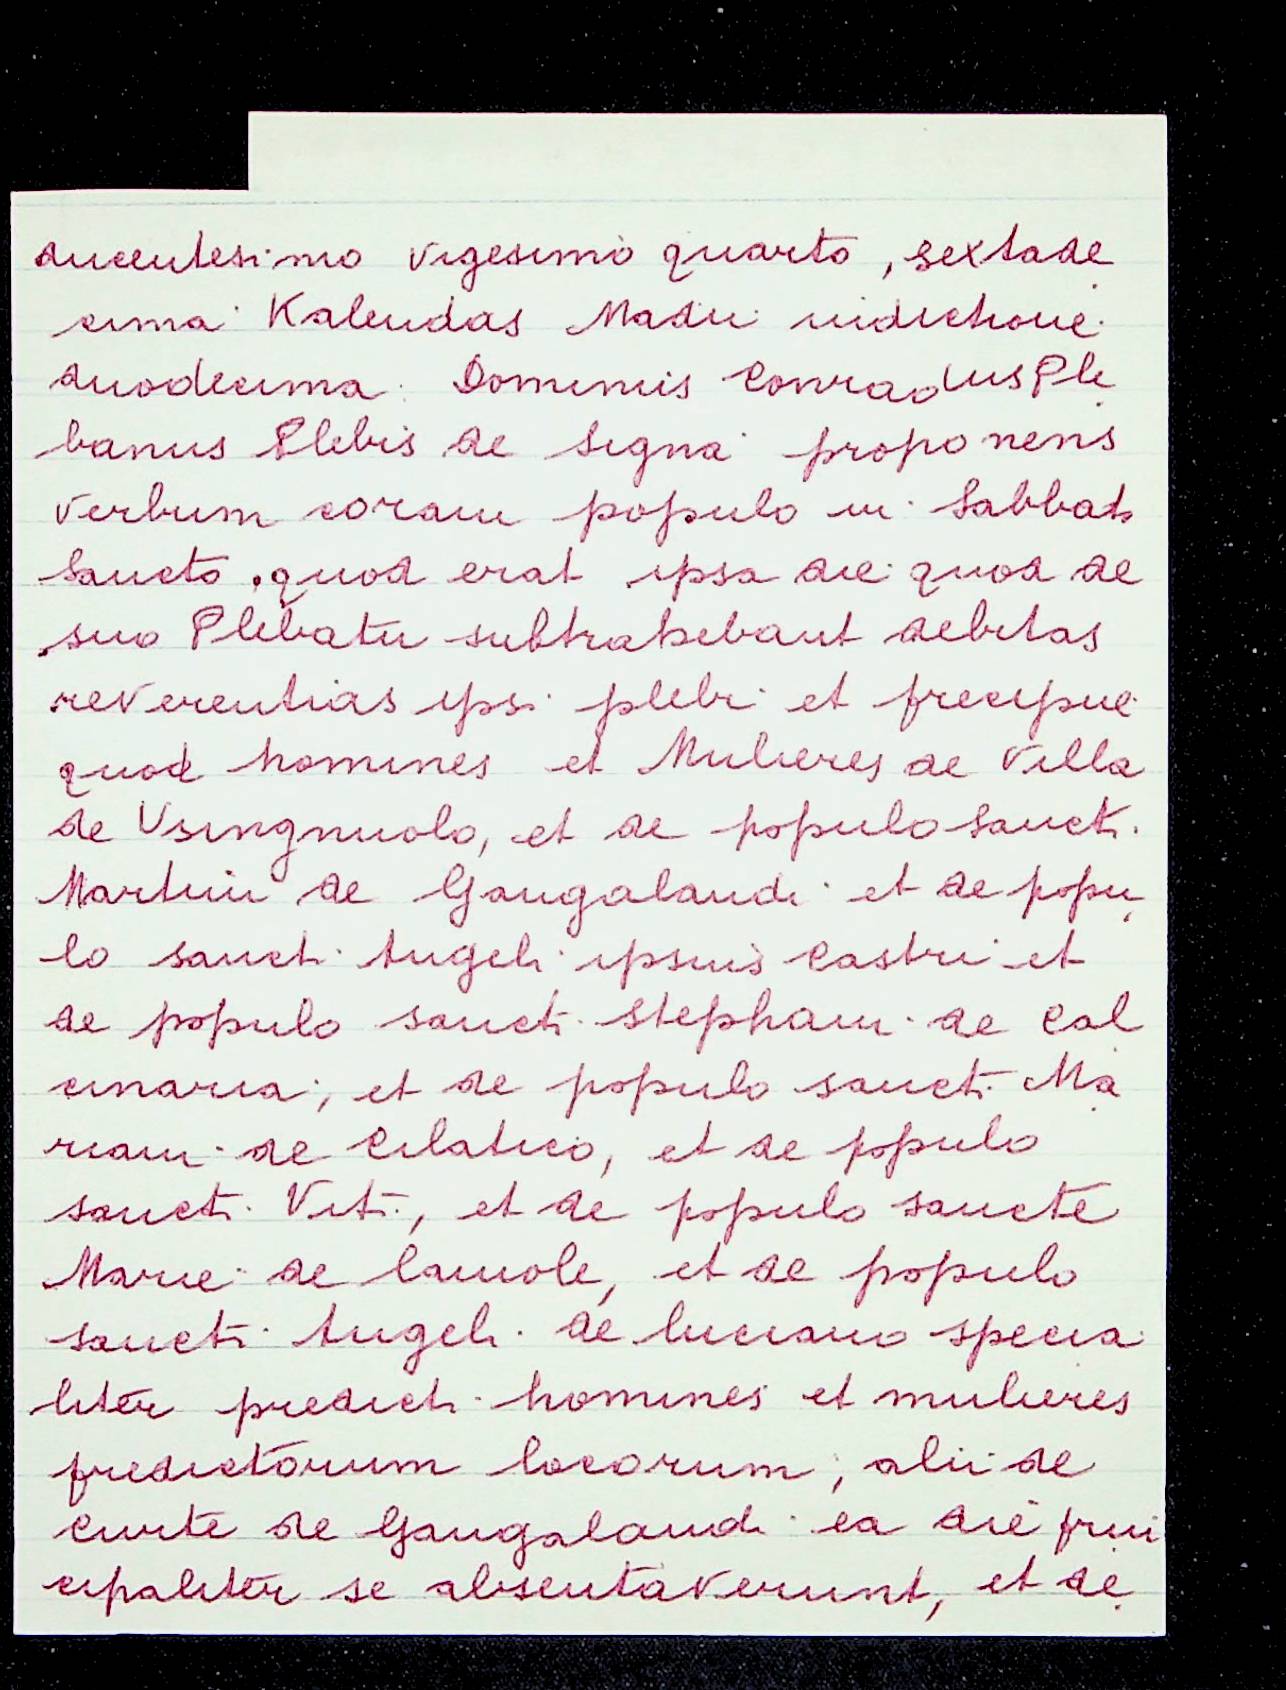 ducentesimo vigesimo quarto, sextade
cima Kalendas Madii indictione
duodecima. Dominus Conradus Ple
banus Plebis de Signa proponens
verbum coram populo in Sabbato
Sancto, quod erat ipsa die quod de
suo Plebatu subtrahebant debitas
reverentias ipsi plebi et precipue
quod homines et Mulieres de Villa
de Usingnuolo, et de populo sancti
Martini de Gangalandi et de popu
lo sancti Angeli ipsius Castri et
de populo sancti Stephani de Cal
cinaria, et de populo sancti Ma
riani de Cilatico, et de populo
sancti Viti, et de populo sancte
Marie de lamole, et de populo
sancti Angeli de luciano specia
liter predicti homines et mulieres
predictorum locorum, alii de
Curte de Gangalandi ea die prin
cipaliter se absentaverunt, et de